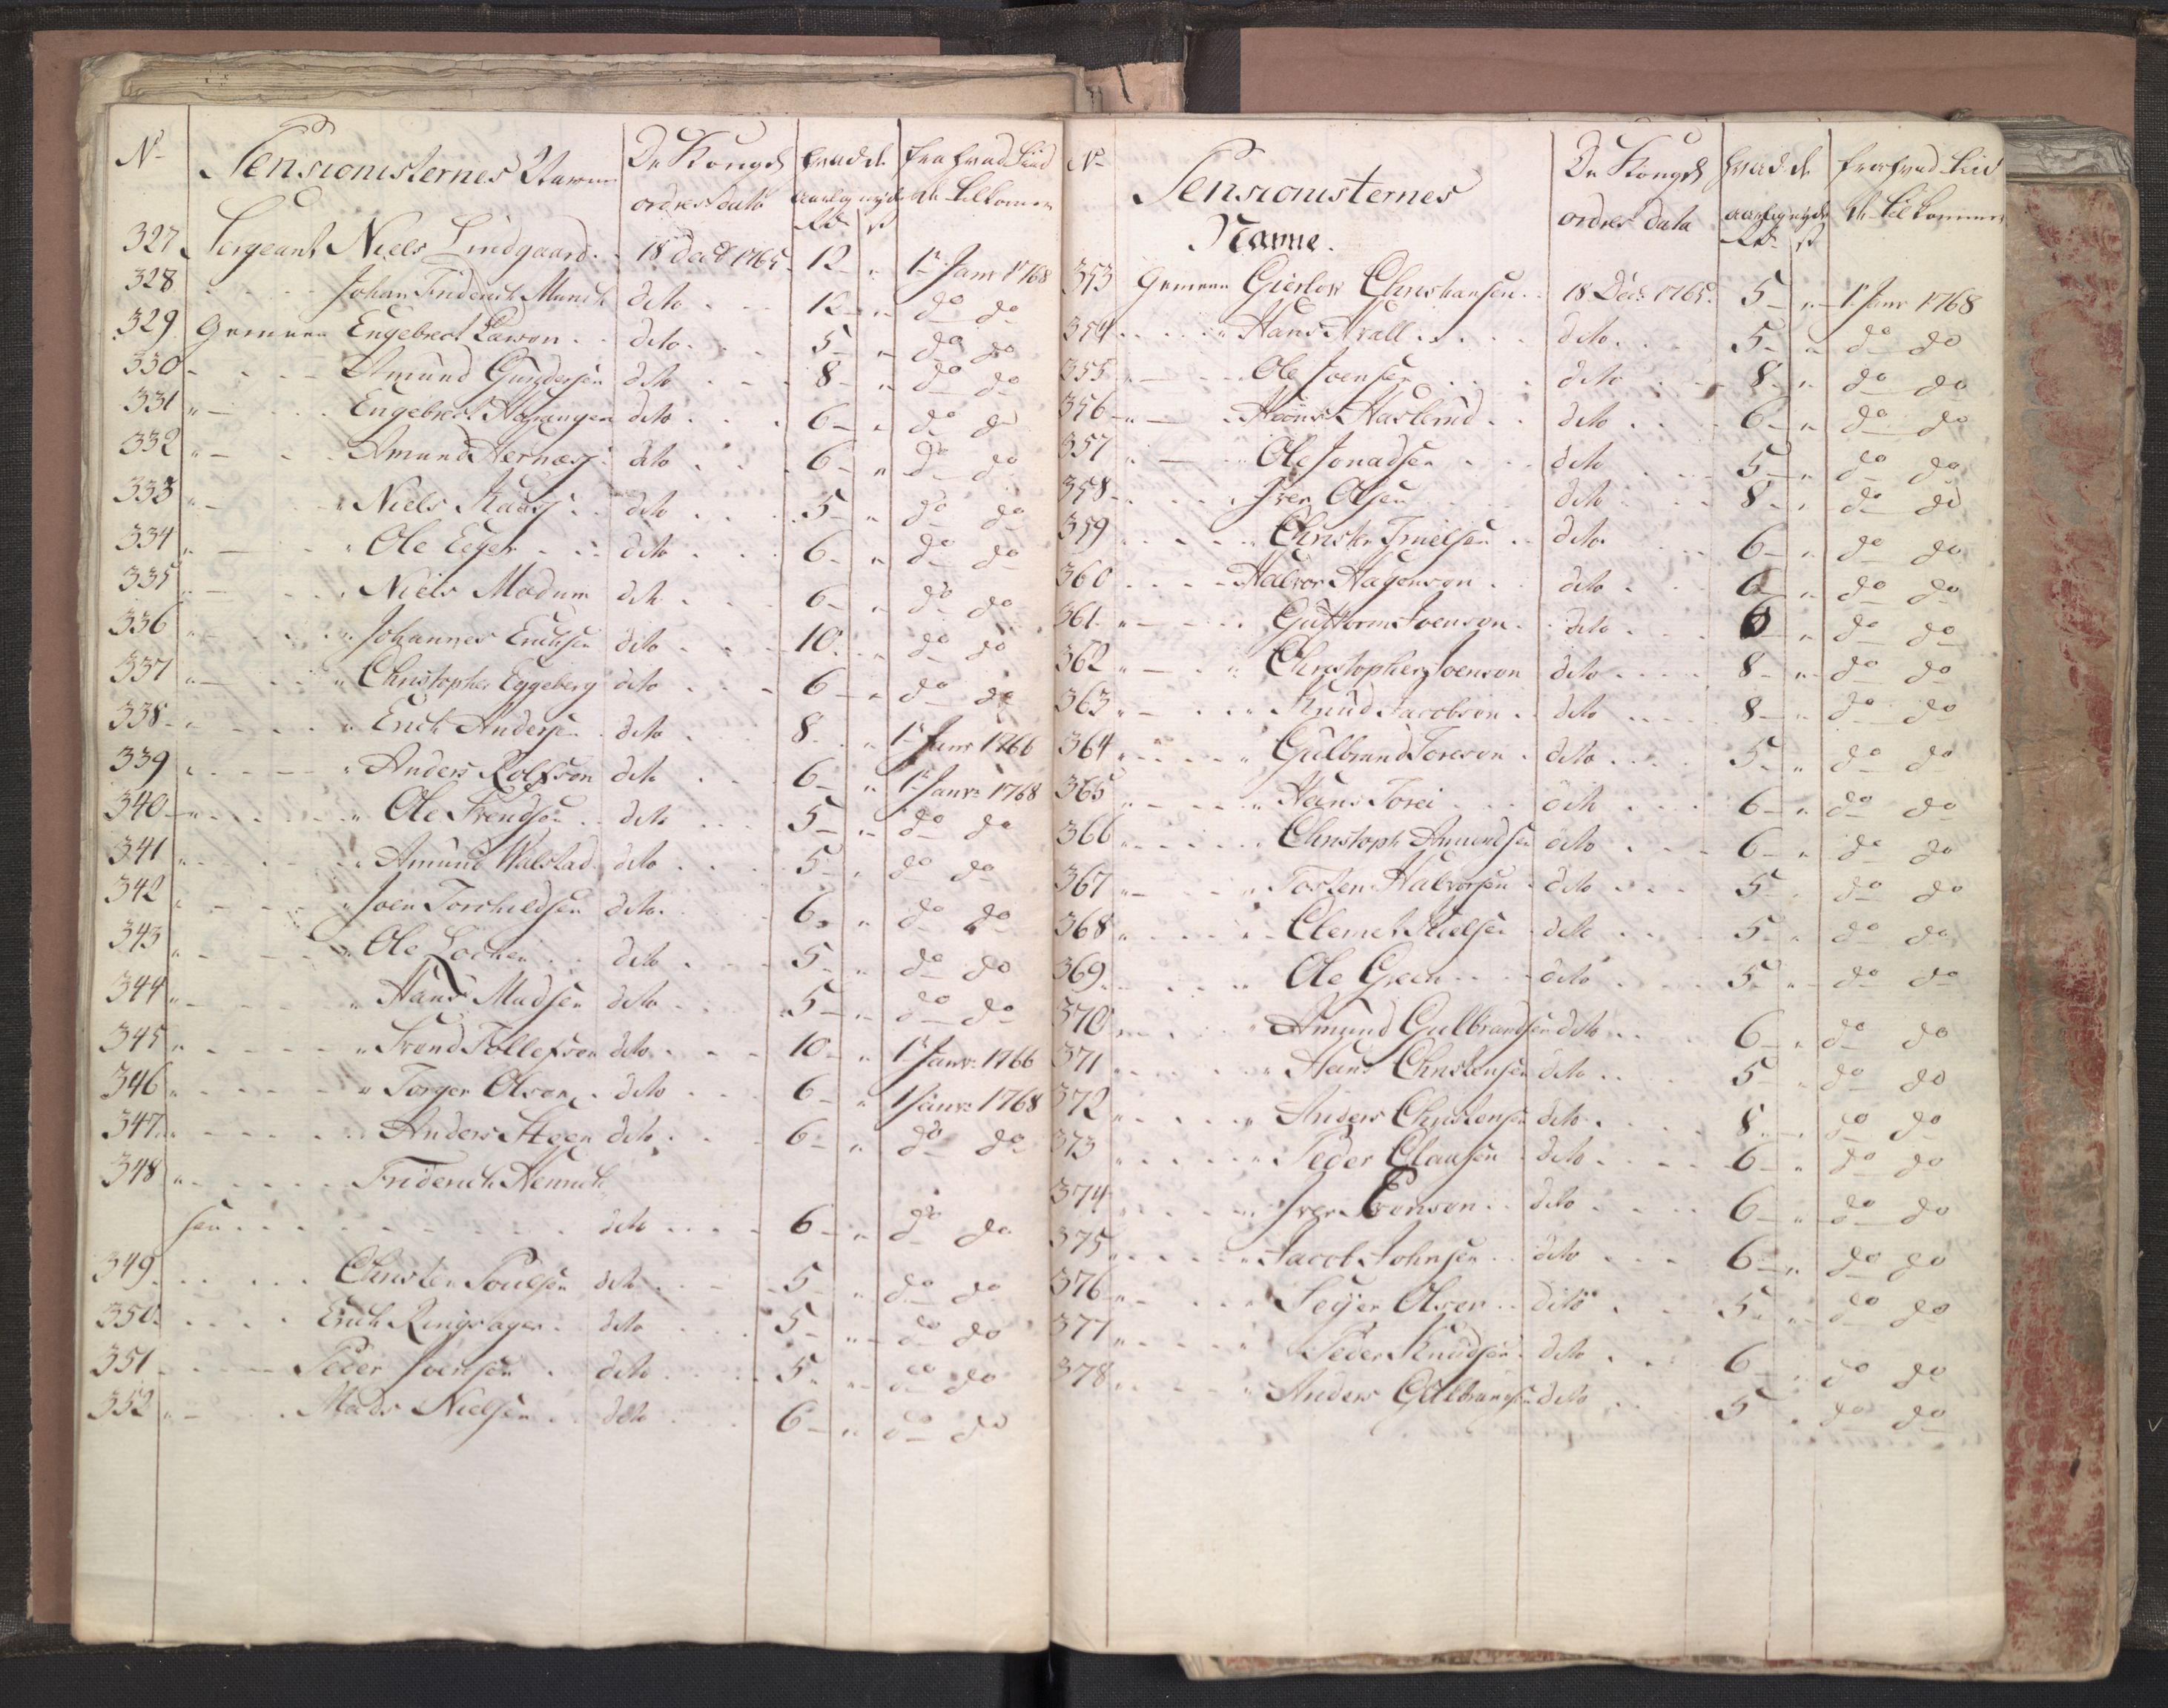 No Pensionisternes Navne De Kongel hvad de fra hvad Tiid
ordres data aarlig nyde de tilkommer
Rd ß
327 Sergeant Niels Lindgaard 18 Decbr 1765 12 " 1 Janr 1768
328 Johan Friderich Munch dito 12 " do do
329 Gemeen Engebret Larson dito 5 " do do
330 Amund Gundersen dito 8 " do do
331 " Engebret dito 6 " do do
332 " Amund dito 6 " do do
333 " Niels Kaasj dito 5 " do do
334 " Ole Eeger dito 6 " do do
335 " Niels Modum dito 6 " do do
336 " Johannes Erichsen dito 10 " do do
337 " Christopher Eggeberg dito 6 " do do
338 " Erich Andersen dito 8 " 1 Janr 1766
339 " Anders Rolfson dito 6 " 1 Janr 1768
340 " Ole Trendsen dito 5 " do do
341 " Amund Walstad dito 5 " do do
342 " Joen Torchildsen dito 6 " do do
343 " Ole dito 5 " do do
344 " Hans Madsen dito 5 " do do
345 " Trond Tollefson dito 10 " 1 Janr 1766
346 " Torger Olsen dito 6 " 1 Janr 1768
347 " Anders Steen dito 6 " do do
348 " Friderich Henrich
sen dito 6 " do do
349 Christen Poulsen dito 5 " do do
350 Erich Ringsager dito 5 " do do
351 Peder Joensen dito 5 " do do
352 " Mads Nielsen dito 6 " do do
No Pensionisternes De Kongel hvad de fra hvad Tiid
Navne. ordres data aarlig nyde de tilkommer
Rd ß
353 Gemeen Gierlov Christiansen 18 Decbr 1765 5 " 1 Janr 1768
354 " Hans Arall dito 5 " do do
355 " Ole Joensen dito 8 " do do
356 " Haslerud dito 6 " do do
357 " Ole Jonadsen dito 5 " do do
358 Iver Olsen dito 8 " do do
359 " Christen dito 6 " do do
360 Halvor Hagenson dito 6 " do do
361 " Guttorm Joenson dito 6 " do do
362 " Christopher Joenson dito 8 " do do
363 " Knud Jacobson dito 8 " do do
364 " Gulbrand Toreson dito 5 " do do
365 " Hans Torei dito 6 " do do
366 " Christoph Amundsen dito 6 " do do
367 " Torsten Halvorsen dito 5 " do do
368 " Clemet Nielsen dito 5 " do do
369 " Ole Green dito 5 " do do
370 " Amund Gulbrandsen dito 6 " do do
371 " Hans Christensen dito 5 " do do
372 " Anders Christensen dito 8 " do do
373 " Peder Clausen dito 6 " do do
374 " Iver Evenson dito 6 " do do
375 " Jacob Johnsen dito 6 " do do
376 " Sejer Olsen dito 5 " do do
377 " Peder Knudsen dito 6 " do do
378 " Anders Gulbrandsen dito 5 " do do